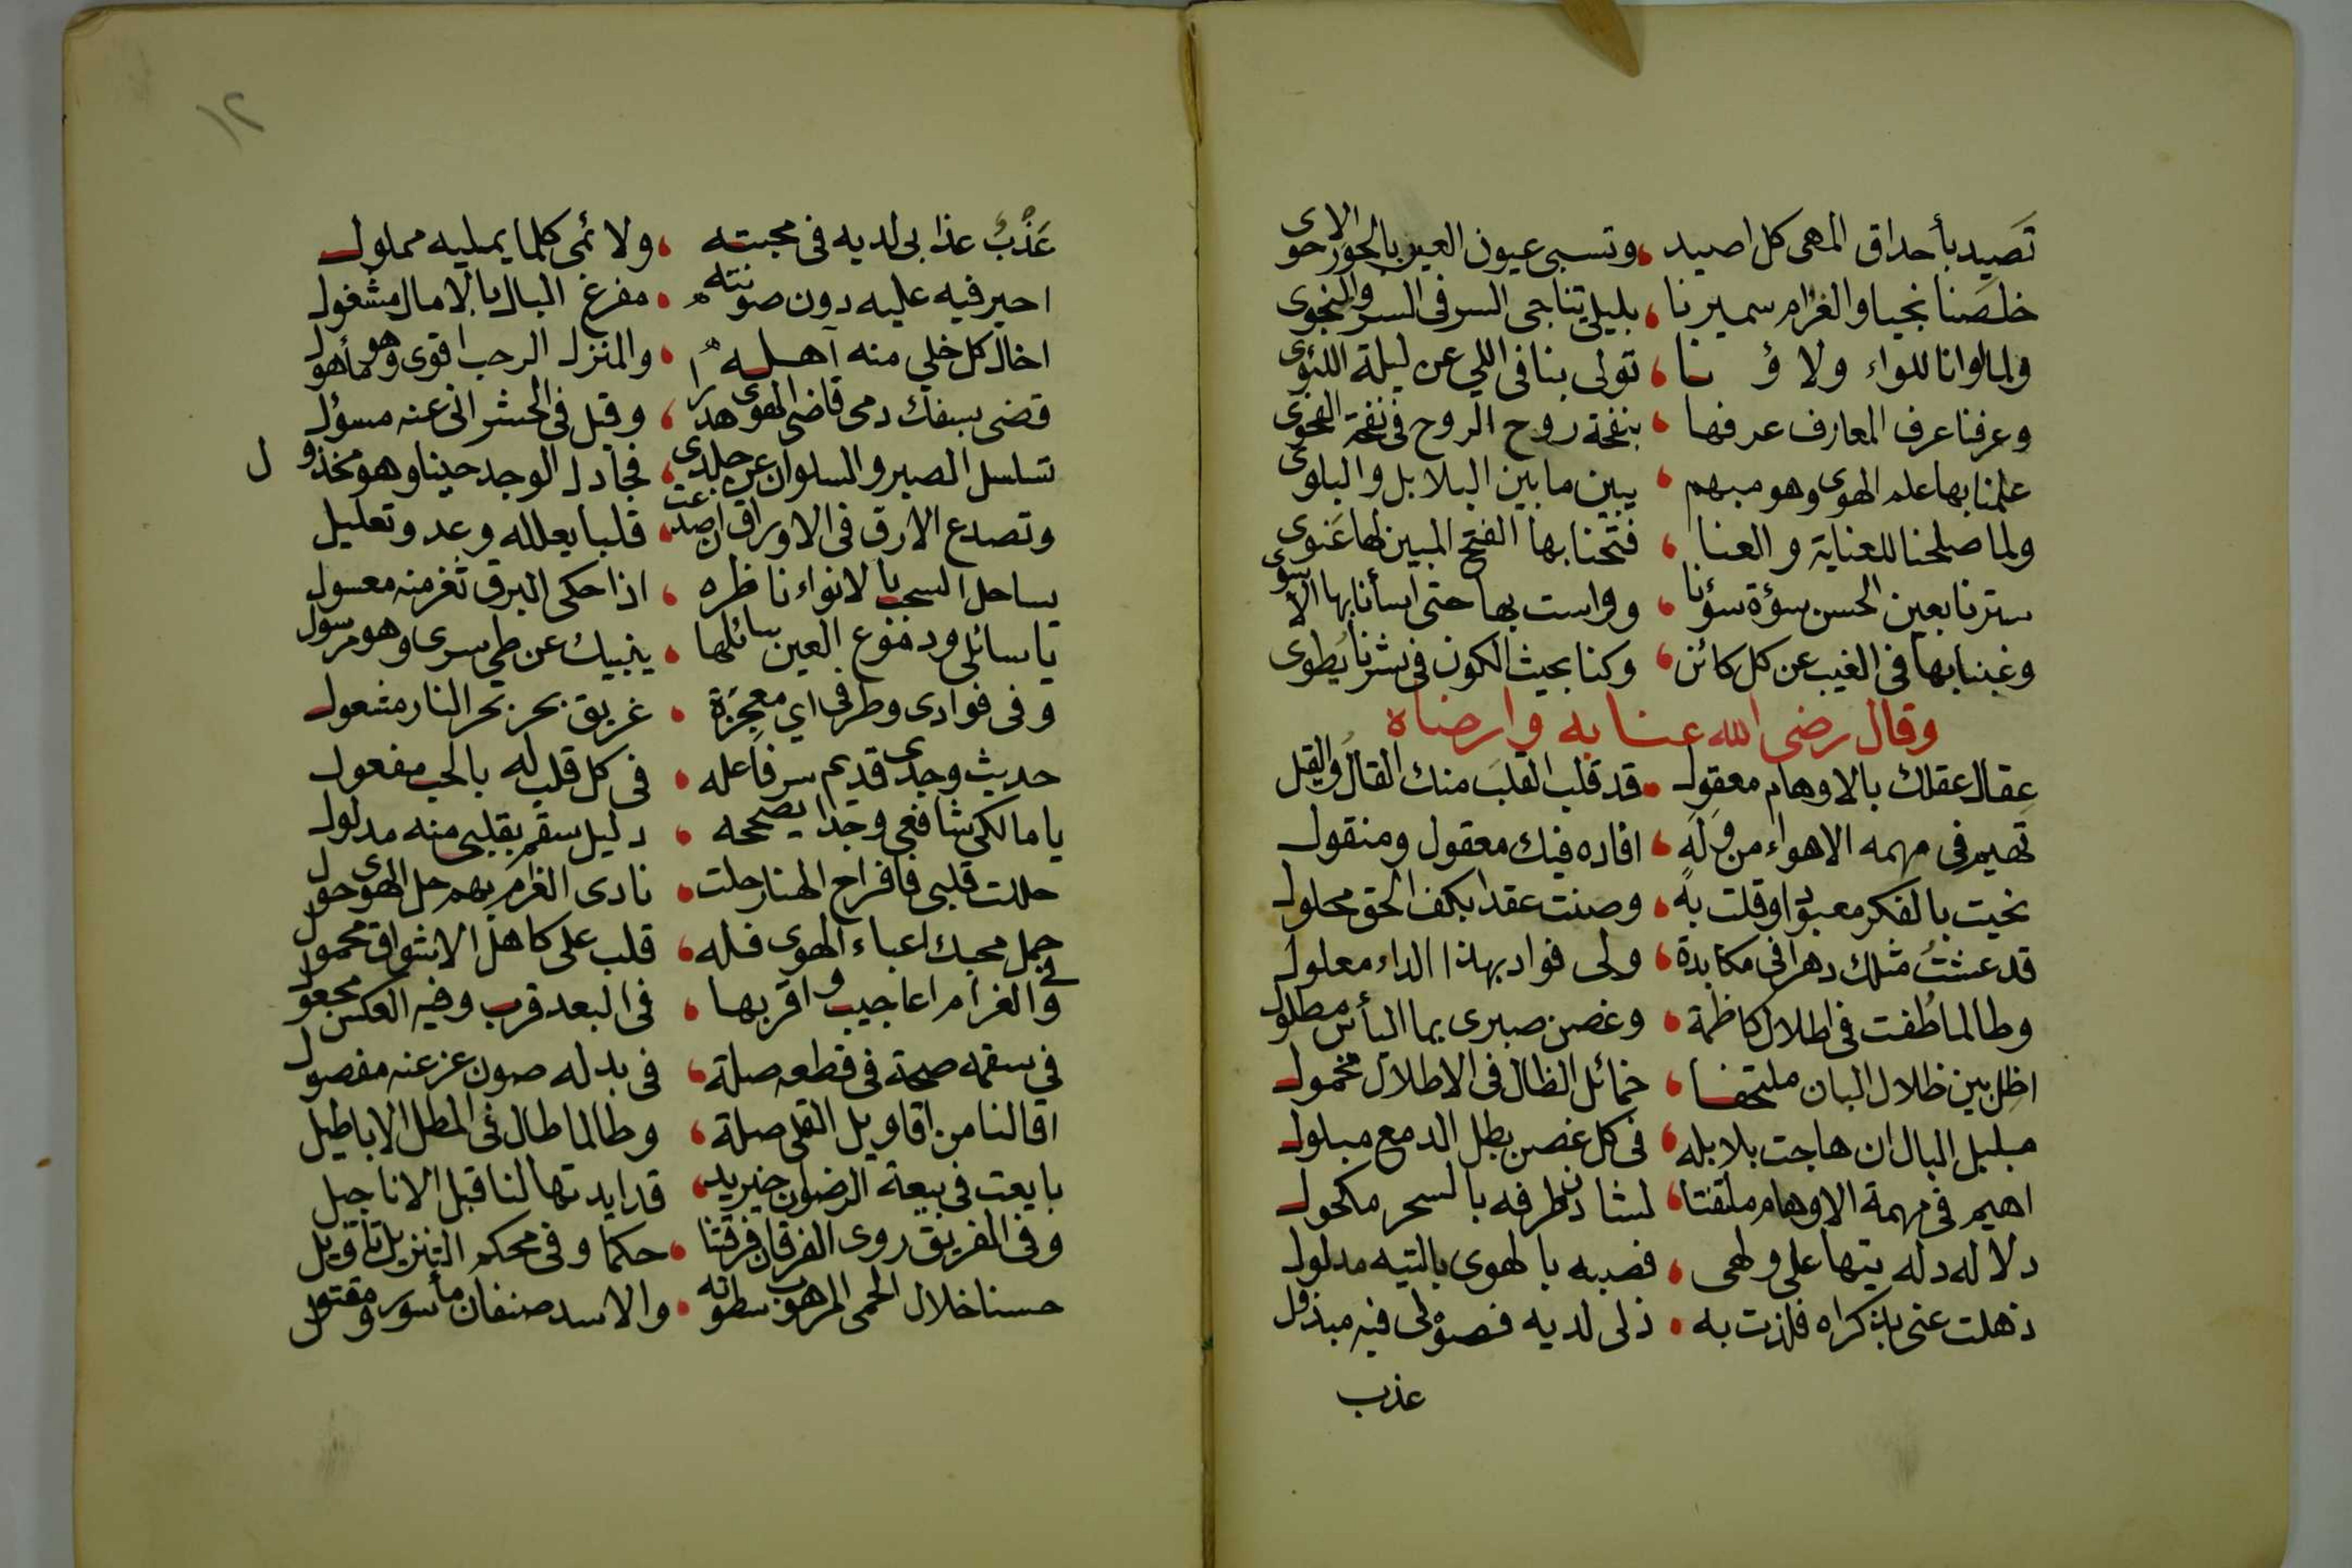 تصيد بأحداق المهى كل اصيد ، وتسبى عيون العين بالحور الاحوى
خلصنا نجيا والغرام سميرنا ، بليل تناجى السر فى السر والنجوى
ولما لوانا للواء ولاؤنا ، تولى بنا فى اللي عن ليلة اللئوى
وعرفنا عرف المعارف عرفها ، بنفحة روح الروح فى نفحة الفحوى
علمنا بها علم الهوى وهو مبهم ، يبين ما بين البلابل والبلوى
ولما صلحنا للعناية والعنا ، فتحنا بها الفتح المبين لها عنوى
سترنا بعين الحسن سوءة سوؤنا ، وواست بها حتى اسأنا بها الاسوى
وغبنا بها فى الغيب عن كل كائن ، وكنا بحيث الكون فى نشرنا يُطوى
وقال رضى الله عنا به وارضاه
عقال عقلك بالاوهام معقول ، قد قلب القلبَ منك القالُ والقيل
تهيم فى مهمه الاهواء من وله ، افاده فيك معقول ومنقول
نحيت بالفكر معبودا وقلت به ، وصنت عقدا بكف الحق محلول
قد عشتُ مثلك دهرا فى مكابدة ، ولى فواد بهذا الداء معلول
وطالما طُفت فى اطلال كاظمة ، وغصن صبرى بما اليأس مطلول
اظل بين ظلال البان ملتحفا ، خمائل الظال فى الاطلال مخمول
مبلبل البال ان هاجت بلابله ، فى كل غصن بطل الدمع مبلول
اهيم فى مهمة الاوهام ملتفتا ، لشادن طرفه بالسحر مكحول
دلاله دله يتها على ولهى ، فصبه بالهوى بالتيه مدلول
ذهلت عنى بذكراه فلذت به ، ذلى لديه فصوْلى فيه مبذول
عذب
١٢
عَذْبٌ عذابى لديه فى محبته ، ولائمى كلما يمليه مملول
احير فيه عليه دون صونته ، مفرغ البال بالامال مشغول
اخال كل خلي منه آهله ، والمنزل الرحب اقوى وهو مأهول
قضى بسفك دمى قاضى الهوى هدرا ، وقيل فى الحشر انى عنه مسؤل
تسلسل الصبر والسلوان عن جلدى ، فجادل الوجد حينا وهو مخذول
وتصدع الارق فى الاوراق ان صدعت ، قلبا يعلله وعد وتعليل
يساحل السحب بالانواء ناظره ، اذا حكى البرق ثغر منه معسول
يا سائلى ودموع العين سائلها ، ينبيك عن طي سرى وهو مرسول
وفى فوادى وطرفى اي معجزة ، غريق بحر بحر النار مشعول
حديث وجدى قديم سر فاعله ، فى كل قلب له بالحب مفعول
يا مالكى شافعى وجدا يصححه ، دليل سقم بقلبى منه مدلول
حللت قلبى فافراح الهنا رحلت ، نادى الغرام بهم حل الهوى حول
حمل محبك اعباء الهوى فله ، قلب على كاهل الاشواق محمول
وفى الغرام اعاجيب واقربها ، فى البعد قرب وفيه العكس مجعول
فى سقمه صحة فى قطعه صلة ، فى بدله صون عز عنه مفصول
اقالنا من اقاويل القلى صلة ، وطالما طال فى المطل الاباطيل
بايعت فى بيعة الرضوان خير يد ، قد ايدتها لنا قبل الاناجيل
وفى الفريق روى الفرقان فرقتنا ، حكما وفى محكم التنزيل تاويل
حسنا خلال الحمى المرهوب سطوته ، والاسد صنفان مأسور ومقتول